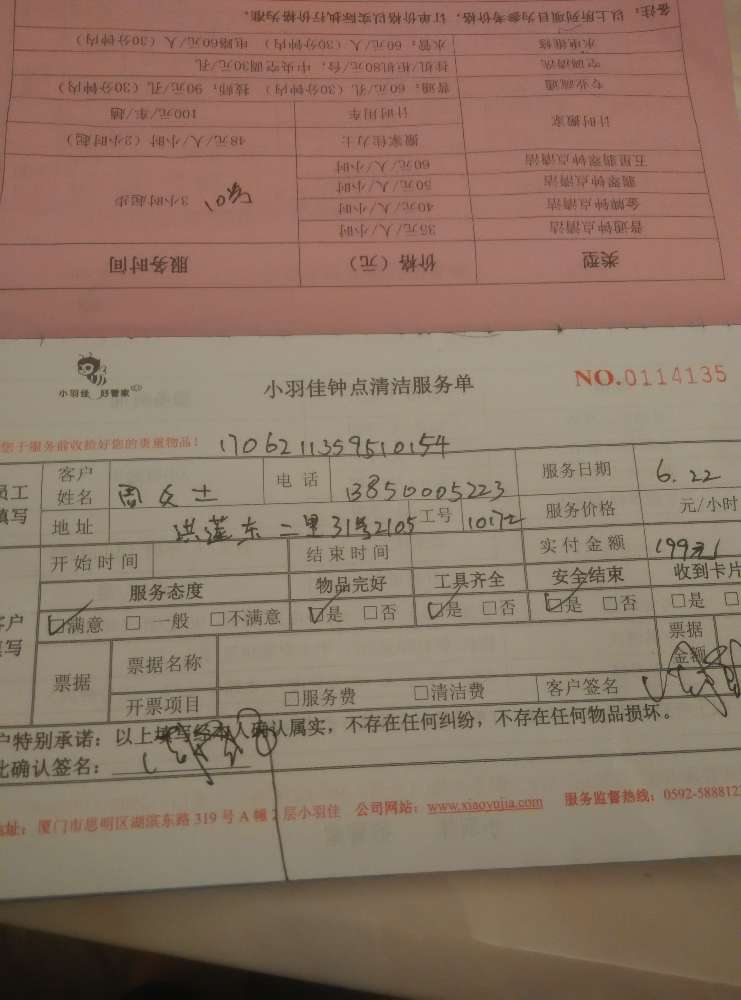 备注：以上所列项目为参考价格，订单价格以实际执行价格为准。
水电维修 水管：60元/人（30分钟内） 电路60元/人（30分钟内）
空调清洗 挂机/柜机80元/台，中央空调30元/孔
专业疏通 普通：60元/孔（30分钟内） 技师：90元/孔（30分钟内）
计时搬家 计时用车 100元/车/趟
搬家佳力士 48元/人/小时（2小时起）
五星翡翠钟点清洁 60元/人/小时
翡翠钟点清洁 50元/人/小时
金牌钟点清洁 40元/人/小时 3小时起步
普通钟点清洁 35元/人/小时
类型 价格（元） 服务时间
小羽佳 好管家
小羽佳钟点清洁服务单
NO.0114135
您于服务前收捡好您的贵重物品！ 1706211359510154
员工填写 客户姓名 周女士 电话 13850005223 服务日期 6.22
地址 洪莲东二里31号2105 工号 服务价格 元/小时
开始时间 结束时间 实付金额 199元
服务态度 物品完好 工具齐全 安全结束 收到卡片
客户填写 ☑满意 □一般 □不满意 ☑是 □否 ☑是 □否 ☑是 □否 □是 □
票据 票据名称 票据金额
开票项目 □服务费 □清洁费 客户签名
户特别承诺：以上填写经本人确认属实，不存在任何纠纷，不存在任何物品损坏。
此确认签名：
地址：厦门市思明区湖滨东路319号A幢2层小羽佳 公司网站：www.xiaoyujia.com 服务监督热线：0592-588812